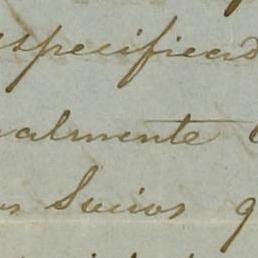 especificad
ualmente
os Suios q